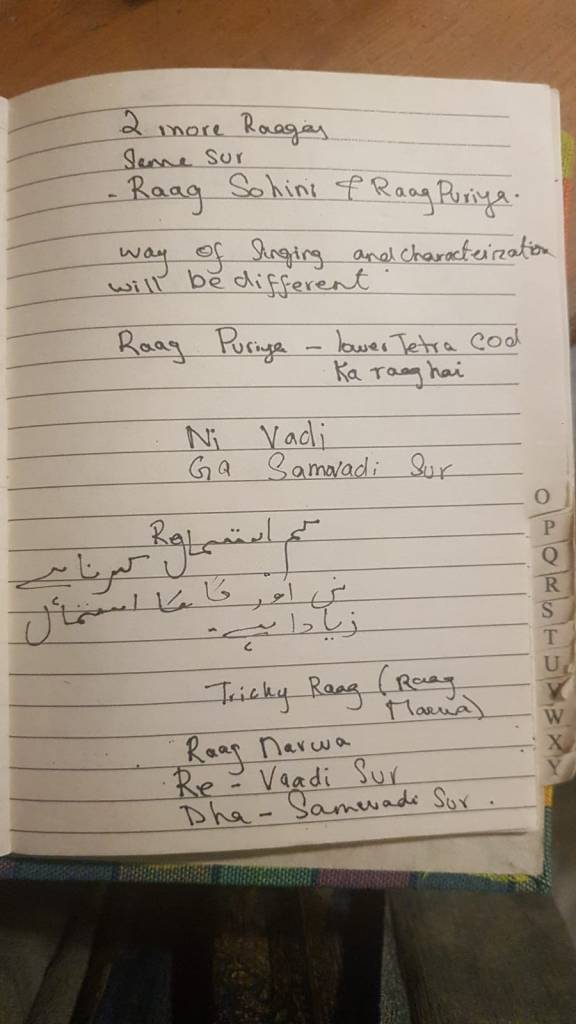 2 more Raagas
Same Sur
- Raag Sohini & Raag Puriya.
way of Singing and characterization
will be different
Raag Puriya - lower Tetra Cod
Ka raag hai
Ni Vadi
Ga Samvadi Sur
Re کم استعمال کرنا ہے
نی اور گا کا استمائل
زیادا ہے۔
Tricky Raag (Raag
Marwa)
Raag Marwa
Re - Vaadi Sur
Dha - Samwadi Sur.
O
P
Q
R
S
T
U
V
W
X
Y